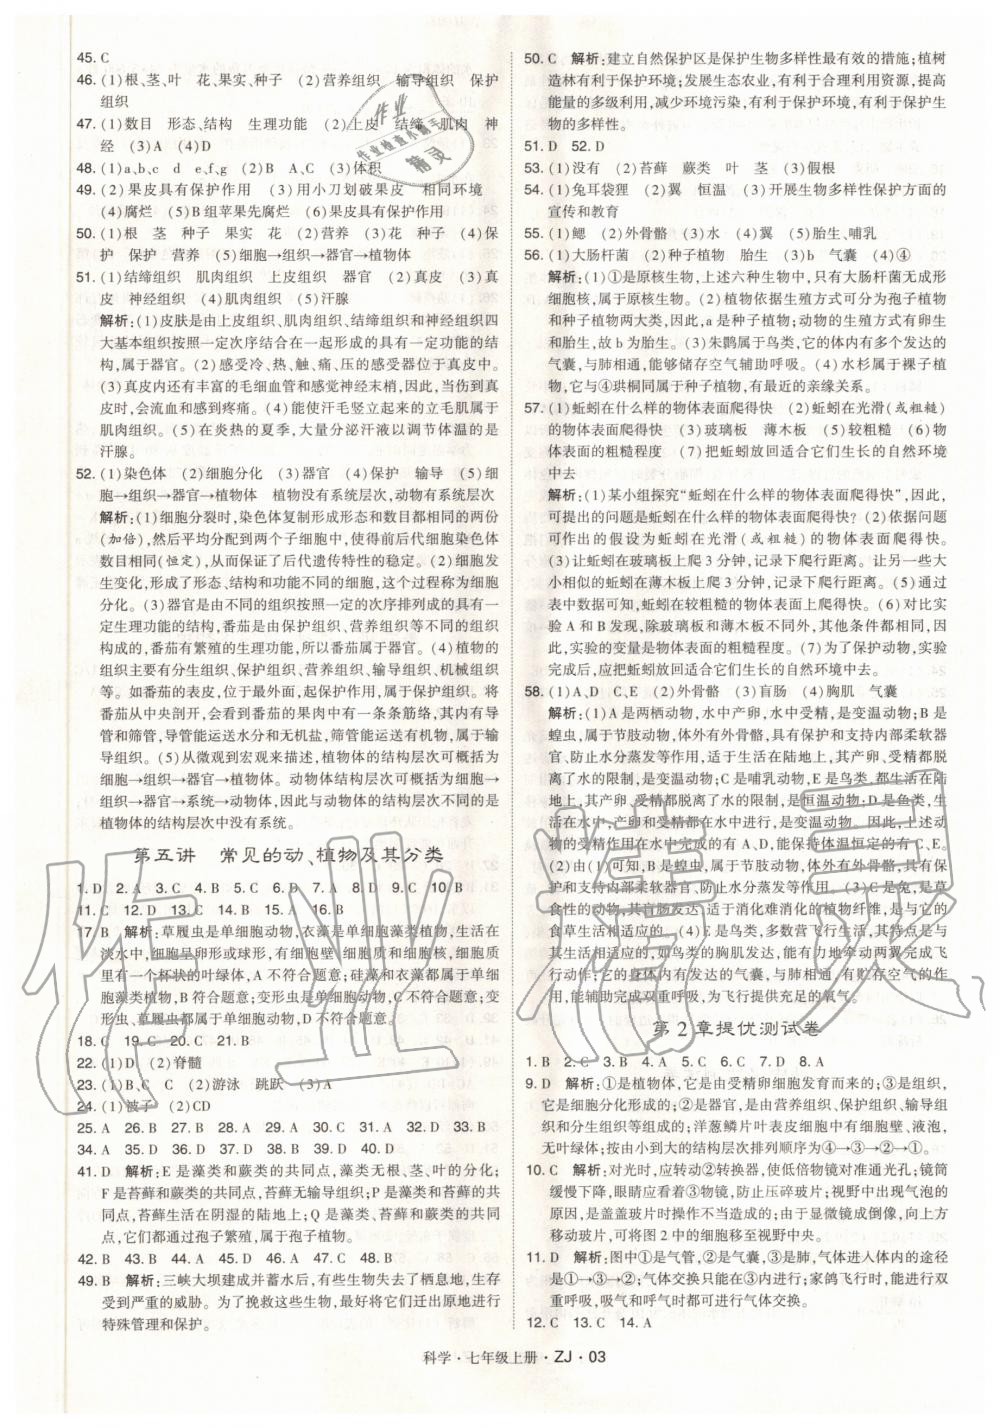 45. C
46. (1)根、茎、叶　花、果实、种子　(2)营养组织　输导组织　保护
组织
47. (1)数目　形态、结构　生理功能　(2)上皮　结缔　肌肉　神
经　(3)A　(4)D
48. (1)a、b、c　d　e、f、g　(2)B　A、C　(3)体积
49. (2)果皮具有保护作用　(3)用小刀划破果皮　相同环境
(4)腐烂　(5)B组苹果先腐烂　(6)果皮具有保护作用
50. (1)根　茎　种子　果实　花　(2)营养　(3)花　种子　(4)保
护　保护　营养　(5)细胞→组织→器官→植物体
51. (1)结缔组织　肌肉组织　上皮组织　器官　(2)真皮　(3)真
皮　神经组织　(4)肌肉组织　(5)汗腺
解析:(1)皮肤是由上皮组织、肌肉组织、结缔组织和神经组织四
大基本组织按照一定次序结合在一起形成的具有一定功能的结
构,属于器官。(2)感受冷、热、触、痛、压的感受器位于真皮中。
(3)真皮内还有丰富的毛细血管和感觉神经末梢,因此,当伤到真
皮时,会流血和感到疼痛。(4)能使汗毛竖立起来的立毛肌属于
肌肉组织。(5)在炎热的夏季,大量分泌汗液以调节体温的是
汗腺。
52. (1)染色体　(2)细胞分化　(3)器官　(4)保护　输导　(5)细
胞→组织→器官→植物体　植物没有系统层次,动物有系统层次
解析:(1)细胞分裂时,染色体复制形成形态和数目都相同的两份
(加倍),然后平均分配到两个子细胞中,使得前后代细胞染色体
数目相同(恒定),从而保证了后代遗传特性的稳定。(2)细胞发
生变化,形成了形态、结构和功能不同的细胞,这个过程称为细胞
分化。(3)器官是由不同的组织按照一定的次序排列成的具有一
定生理功能的结构,番茄是由保护组织、营养组织等不同的组织
构成的,番茄有繁殖的生理功能,所以番茄属于器官。(4)植物的
组织主要有分生组织、保护组织、营养组织、输导组织、机械组织
等。如番茄的表皮,位于最外面,起保护作用,属于保护组织。将
番茄从中央剖开,会看到番茄的果肉中有一条条筋络,其内有导
管和筛管,导管能运送水分和无机盐,筛管能运送有机物,属于输
导组织。(5)从微观到宏观来描述,植物体的结构层次可概括为
细胞→组织→器官→植物体。动物体结构层次可概括为细胞→
组织→器官→系统→动物体,因此与动物体的结构层次不同的是
植物体的结构层次中没有系统。
第五讲　常见的动、植物及其分类
1. D　2. A　3. C　4. B　5. C　6. B　7. A　8. D　9. C　10. B
11. C　12. D　13. C　14. B　15. A　16. B
17. B　解析:草履虫是单细胞动物,衣藻是单细胞藻类植物,生活在
淡水中,细胞呈卵形或球形,有细胞壁、细胞质和细胞核,细胞质
里有一个杯状的叶绿体,A不符合题意;硅藻和衣藻都属于单细
胞藻类植物,B符合题意;变形虫是单细胞动物,C不符合题意;变
形虫、草履虫都属于单细胞动物,D不符合题意。
18. C　19. C　20. C　21. B
22. (1)D　(2)脊髓
23. (1)B、C　C　(2)游泳　跳跃　(3)A
24. (1)被子　(2)CD
25. A　26. B　27. B　28. A　29. A　30. C　31. A　32. D　33. B
34. A　35. D　36. D　37. D　38. D　39. D　40. D
41. D　解析:E是藻类和蕨类的共同点,藻类无根、茎、叶的分化;
F是苔藓和蕨类的共同点,苔藓无输导组织;P是藻类和苔藓的共
同点,苔藓生活在阴湿的陆地上;Q是藻类、苔藓和蕨类的共同
点,它们都通过孢子繁殖,属于孢子植物。
42. B　43. A　44. B　45. D　46. A　47. C　48. B
49. B　解析:三峡大坝建成并蓄水后,有些生物失去了栖息地,生存
受到严重的威胁。为了挽救这些生物,最好将它们迁出原地进行
特殊管理和保护。
50. C　解析:建立自然保护区是保护生物多样性最有效的措施;植树
造林有利于保护环境;发展生态农业,有利于合理利用资源,提高
能量的多级利用,减少环境污染,有利于保护环境,有利于保护生
物的多样性。
51. D　52. D
53. (1)没有　(2)苔藓　蕨类　叶　茎　(3)假根
54. (1)兔耳袋狸　(2)翼　恒温　(3)开展生物多样性保护方面的
宣传和教育
55. (1)鳃　(2)外骨骼　(3)水　(4)翼　(5)胎生、哺乳
56. (1)大肠杆菌　(2)种子植物　胎生　(3)b　气囊　(4)④
解析:(1)①是原核生物,上述六种生物中,只有大肠杆菌无成形
细胞核,属于原核生物。(2)植物依据生殖方式可分为孢子植物
和种子植物两大类,因此,a是种子植物;动物的生殖方式有卵生
和胎生,故b为胎生。(3)朱鹮属于鸟类,它的体内有多个发达的
气囊,与肺相通,能够储存空气辅助呼吸。(4)水杉属于裸子植
物,它与④珙桐同属于种子植物,有最近的亲缘关系。
57. (1)蚯蚓在什么样的物体表面爬得快　(2)蚯蚓在光滑(或粗糙)
的物体表面爬得快　(3)玻璃板　薄木板　(5)较粗糙　(6)物
体表面的粗糙程度　(7)把蚯蚓放回适合它们生长的自然环境
中去
解析:(1)某小组探究“蚯蚓在什么样的物体表面爬得快”,因此,
可提出的问题是蚯蚓在什么样的物体表面爬得快?(2)依据问题
可作出的假设为蚯蚓在光滑(或粗糙)的物体表面爬得快。
(3)让蚯蚓在玻璃板上爬3分钟,记录下爬行距离。让另一些大
小相似的蚯蚓在薄木板上爬3分钟,记录下爬行距离。(5)通过
表中数据可知,蚯蚓在较粗糙的物体表面上爬得快。(6)对比实
验A和B发现,除玻璃板和薄木板不同外,其他条件都相同,因
此,实验的变量是物体表面的粗糙程度。(7)为了保护动物,实验
完成后,应把蚯蚓放回适合它们生长的自然环境中去。
58. (1)A、D　C、E　(2)外骨骼　(3)盲肠　(4)胸肌　气囊
解析:(1)A是两栖动物,水中产卵,水中受精,是变温动物;B是
蝗虫,属于节肢动物,体外有外骨骼,具有保护和支持内部柔软器
官、防止水分蒸发等作用,适于生活在陆地上,其产卵、受精都脱
离了水的限制,是变温动物;C是哺乳动物,E是鸟类,都生活在陆
地上,其产卵、受精都脱离了水的限制,是恒温动物;D是鱼类,生
活在水中,产卵和受精都在水中进行,是变温动物。因此,上述动
物的受精作用在水中完成的有A、D,能保持体温恒定的有C、E。
(2)由(1)可知,B是蝗虫,属于节肢动物,体外有外骨骼,具有保
护和支持内部柔软器官、防止水分蒸发等作用。(3)C是兔,是草
食性的动物,其盲肠发达,适于消化难消化的植物纤维,是与它的
食草生活相适应的。(4)E是鸟类,多数营飞行生活,其特点是与
其生活相适应的,如鸟类的胸肌发达,能有力地牵动两翼完成飞
行动作;它的身体内有发达的气囊,与肺相通,有贮存空气的作
用,能辅助完成双重呼吸,为飞行提供充足的氧气。
第2章提优测试卷
1. B　2. C　3. B　4. A　5. C　6. C　7. D　8. A
9. D　解析:①是植物体,它是由受精卵细胞发育而来的;③是组织,
它是细胞分化形成的;②是器官,是由营养组织、保护组织、输导组
织和分生组织等组成的;洋葱鳞片叶表皮细胞中有细胞壁、液泡,
无叶绿体;按由小到大的结构层次排列顺序为④→③→②→①。
10. C　解析:对光时,应转动②转换器,使低倍物镜对准通光孔;镜筒
缓慢下降,眼睛应看着③物镜,防止压碎玻片;视野中出现气泡的
原因,是盖盖玻片时操作不当造成的;由于显微镜成倒像,向上方
移动玻片,可将图2中的细胞移至视野中央。
11. D　解析:图中①是气管,②是气囊,③是肺,气体进入体内的途径
是①→③→②;气体交换只能在③内进行;家鸽飞行时,能进行双
重呼吸,吸气和呼气时都可进行气体交换。
12. C　13. C　14. A
科学·七年级上册·ZJ·03
作业
作业检查小助手
精灵
作业精灵